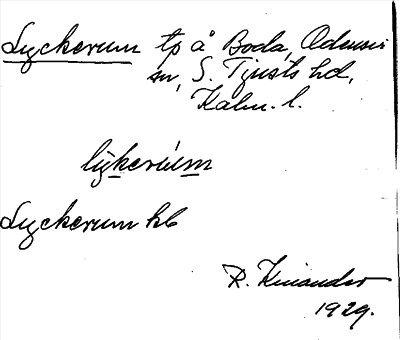 Lyckerum tp å Boda, Odensvi
sn, S. Tjusts hd,
Kalm. l.
lýkerùm
Lyckerum kb
R. Kinander
1929.